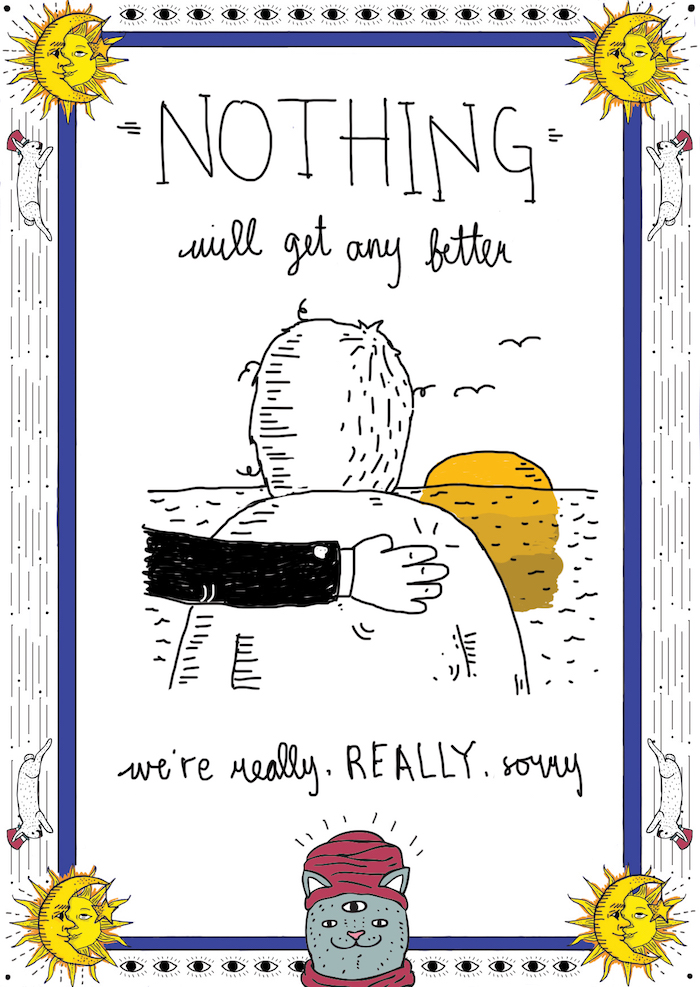 NOTHING
will get any better
we're really. REALLY. sorry